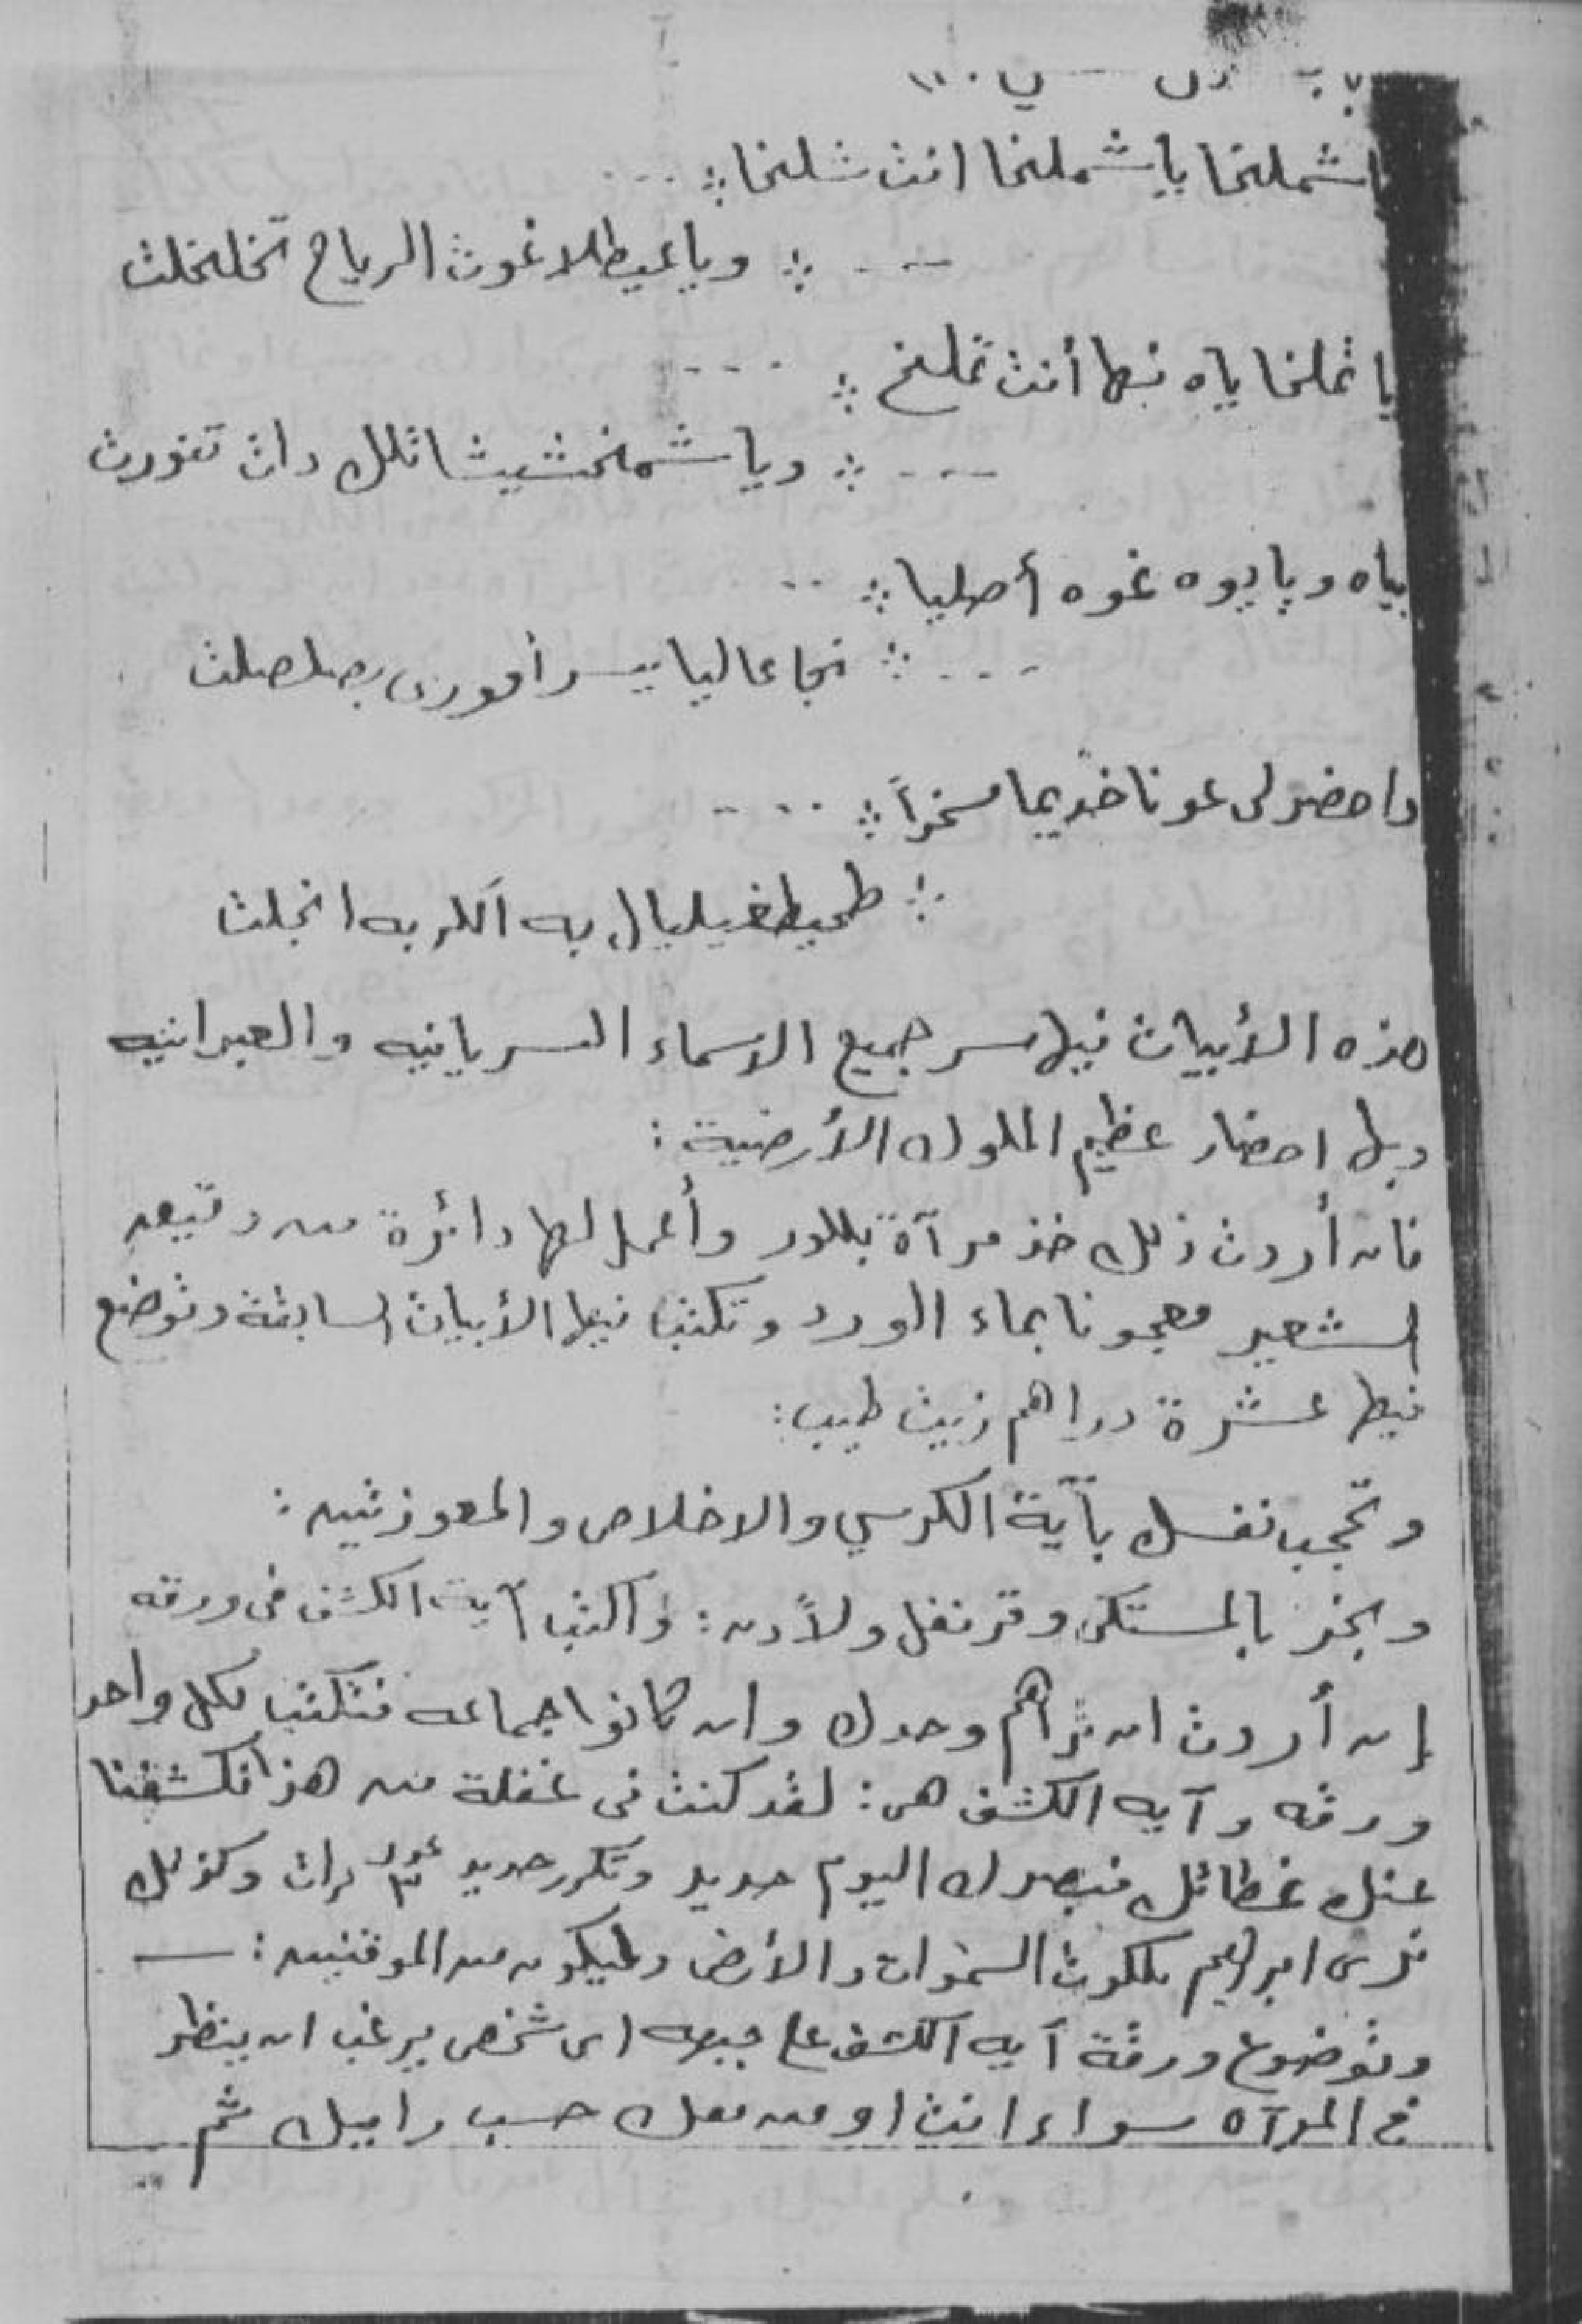 اشملخا يا شملخا انت شلخا ∴ ...
... ∴ ويا عيطلا غوث الرياح تخلخلت
يا تملخا ياه بها أنت تملخ ∴ ....
... ∴ ويا شمخشيثا تلك دات تفورت
بياه ويايوه غوه أصليا ∴ ..
... ∴ نجا عاليا يسر أمورى بصلصلت
واحضر لى عونا خديما مسخراً ∴ ....
∴ طحيطغيليال به الكربه انجلت
هذه الأبيات فيها سر جميع الاسماء السريانيه والعبرانيه
وبها احضار عظيم الملوك الأرضية :
فان أردت ذلك خذ مرآة بللور وأعمل لها دائرة من دقيق
الشعير معجونا بماء الورد وتكتب فيها الأبيات السابقة وتوضع
فيها عشرة دراهم زيت طيب :
وتحجب نفسك بآية الكرسي والاخلاص والمعوذتين :
وبخر بالمستكى وقرنفل ولاًدن : واكتب آية الكشف فى ورقه
إن أردت ان تراهم وحدك وان كانوا جماعه فتكتب لكل واحد
ورقه وآيه الكشف هى : لقد كنت فى غفلة من هذا فكشفنا
عنك غطائك فبصرك اليوم حديد وتكرر حديد عدد ٣ مرات وكذلك
نرى ابراهيم ملكوت السموات والأرض وليكون من الموقنين : —
وتوضوع ورقة آيه الكشف على جبهه اى شخص يرغب ان ينظر
في المرآه سواء انت او من معك حسب راييك ثم